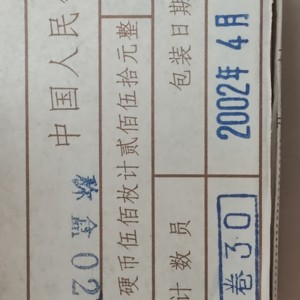 中国人民
02
硬币伍佰枚计贰佰伍拾元整
计数员 包装日期
卷30 2002年4月